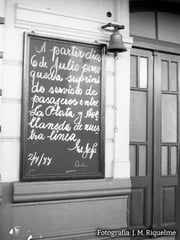 A partir dia
6 de Julio prox
queda suprimi
do servicio de
pasajeros entre
La Plata y Ave
llaneda de nues
tra linea.
El Jefe
2/7/77
Fotografía: J. M. Riquelme